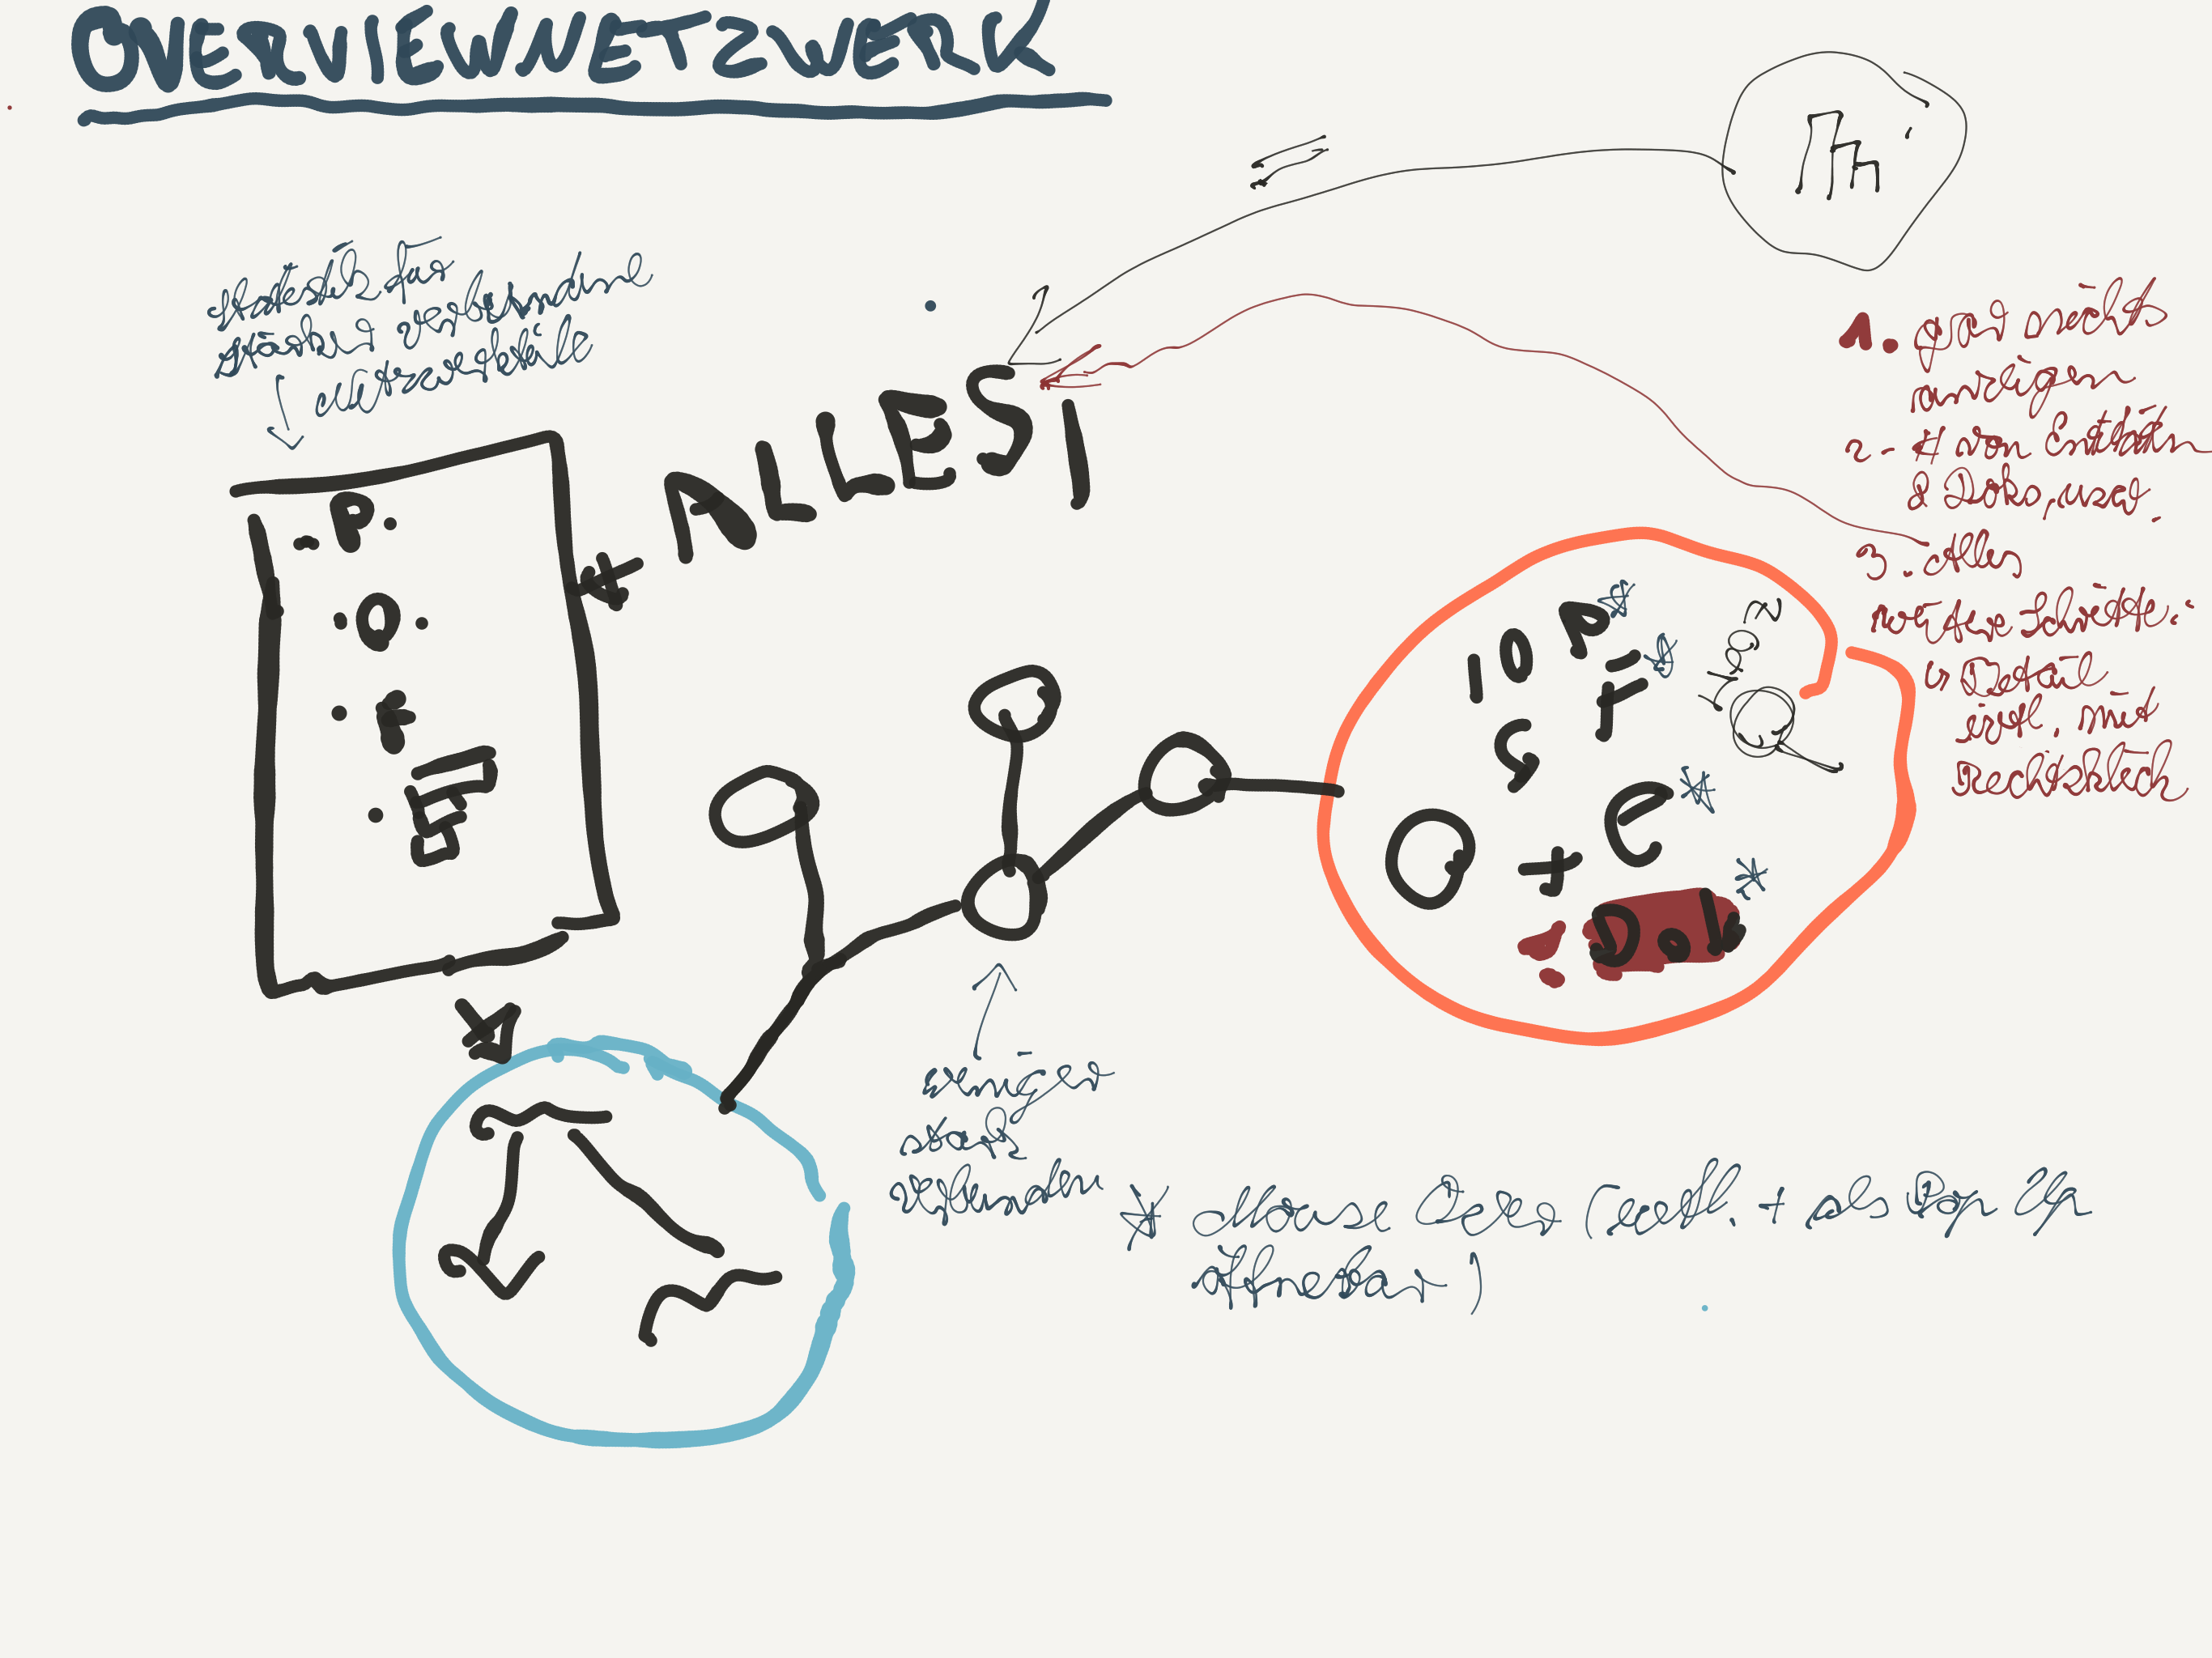 OVERVIEWNETZWERK
statistik für
stärker verbundene
aufzweigteile
P
O
+
ALLES!
1. gar nichts
anzeigen
2. # von Entitäten
& Doks, usw.
3. Alles
weitere Schritte:
↳ Detail
evtl. mit
Rechtsklick
10 P *
5 F *
O + E *
Dok *
weniger
stark
verbunden
* Mouse Over (evtl. + als Pop Up
öffnebar)